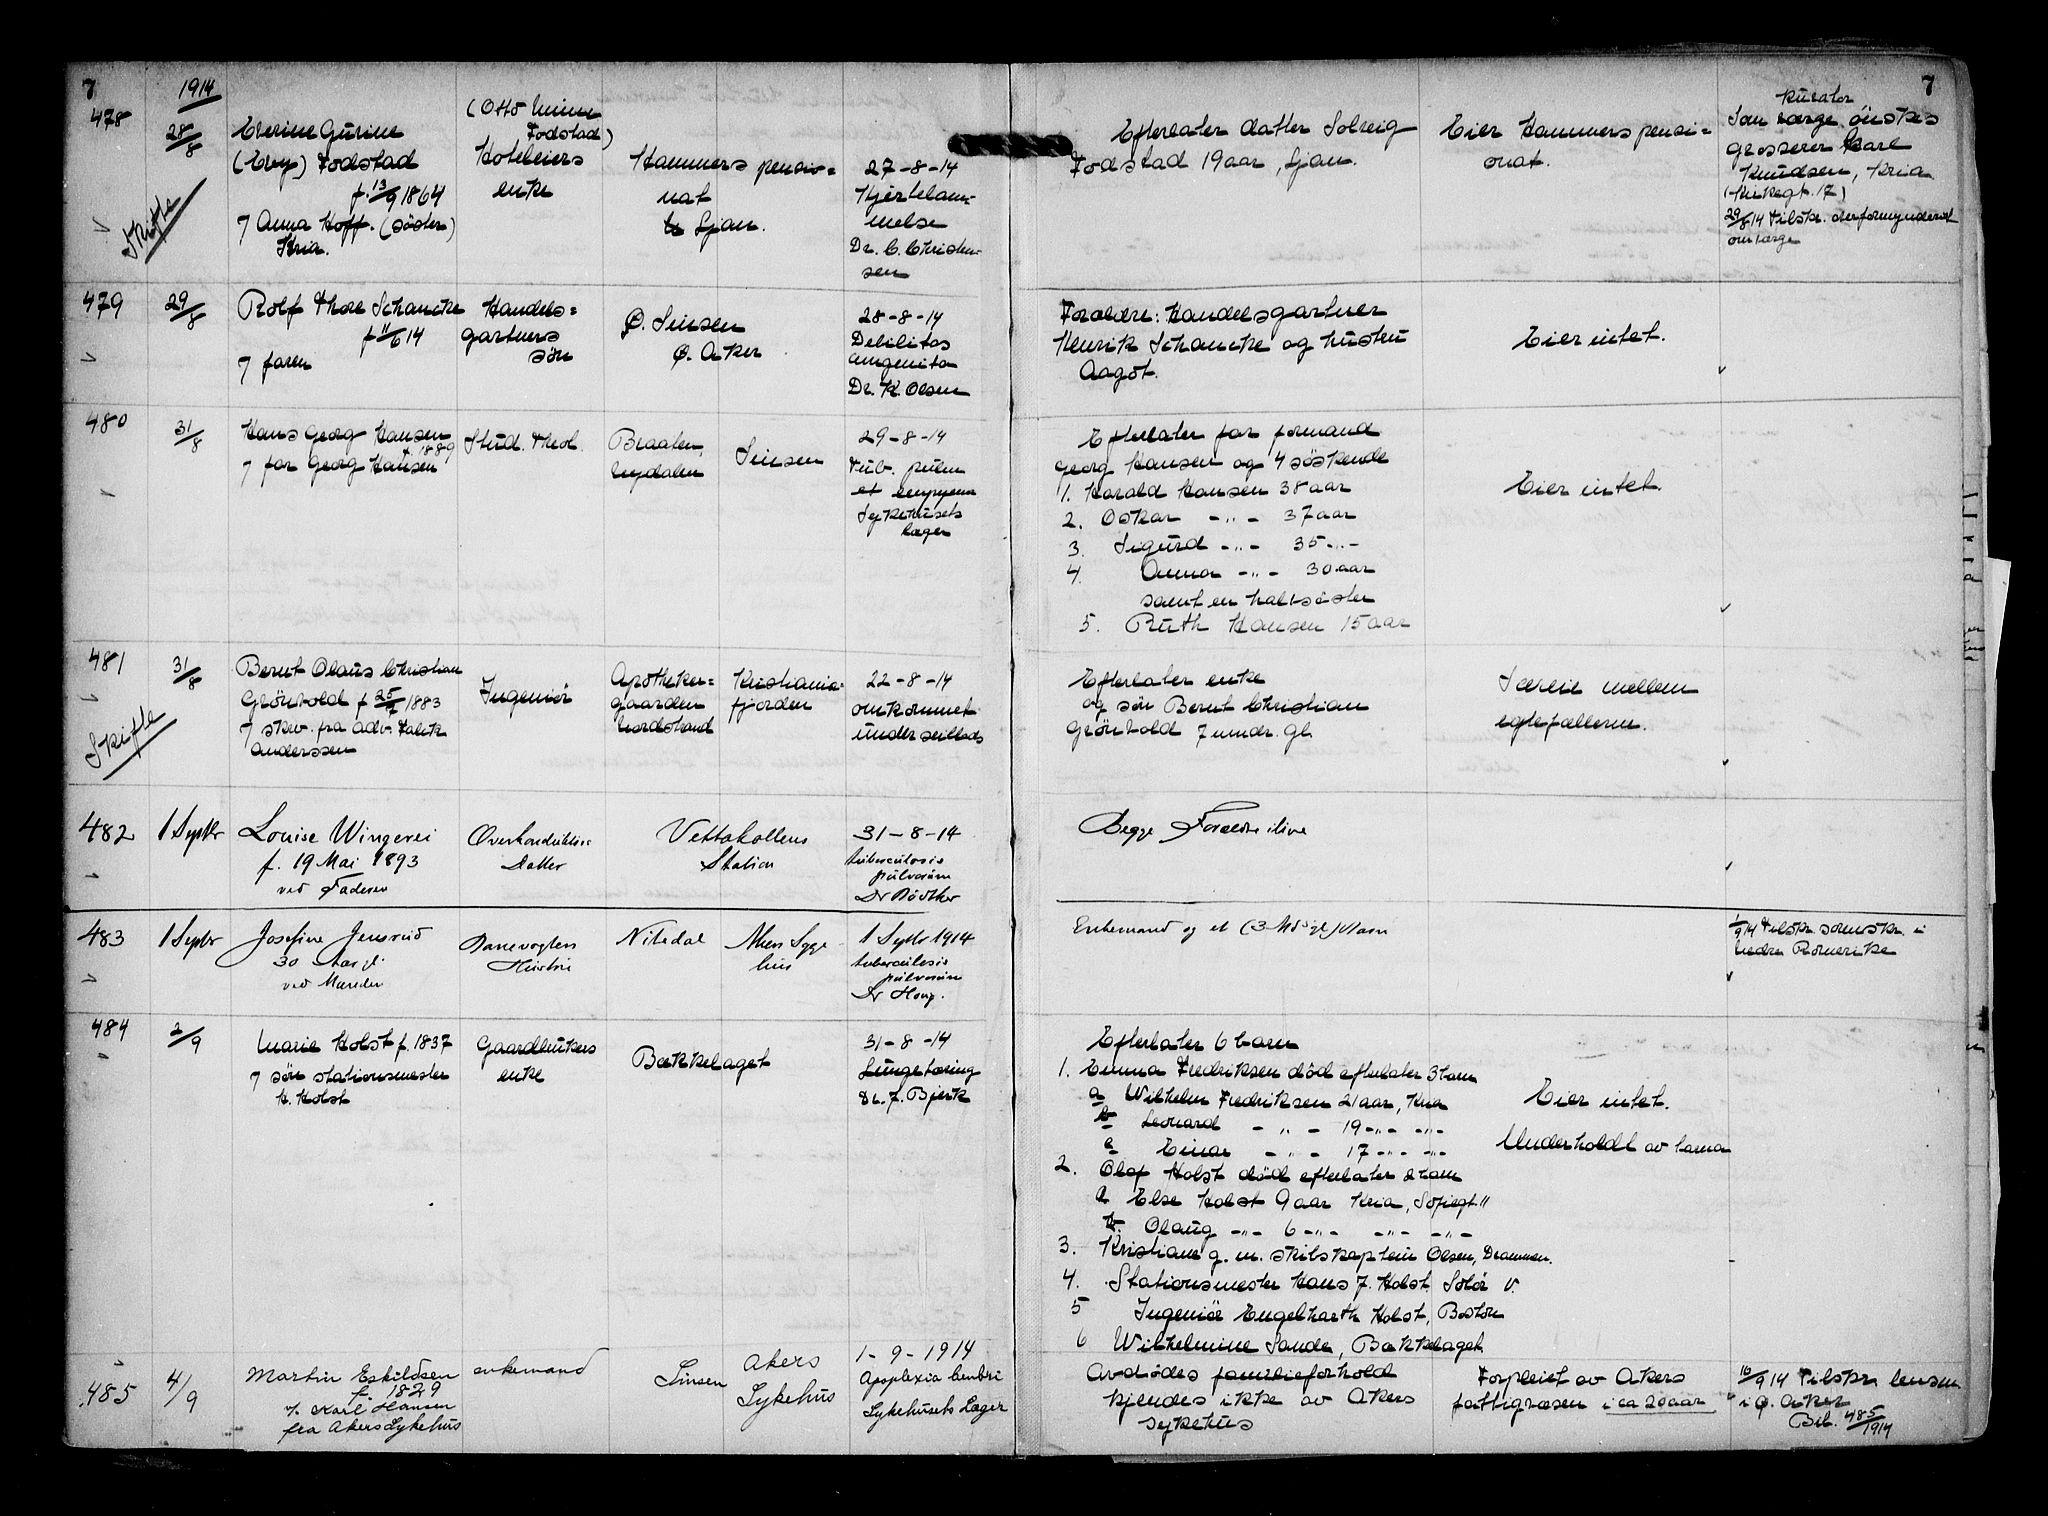 7
1914
7
478
28/8
Everine Gurine
(Evy) Fodstad
f. 13/9 1864
7 Anna Hoff. (söster)
Kria.
Skifte
(Otto
Fodstad)
Hoteleiers
enke
Hammers pensio=
nat
Ljan.
27-8-14
Hjertelam-
melse
Dr. C. Christen-
sen
Efterlater datter Solveig
Fodstad 19 aar, Ljan.
Eier Hammers pensi=
onat.
kurator
Som verge önskes
grosserer Karl
Knudsen, Kria
(Kirkegt. 17)
29/8 14 tilskr. overformynderiet
om verge
479
29/8
Rolf Thore Schancke
f 11/6 14
7 faren
Handels=
gartners
sön
Ø. Sinsen
Ø. Aker
28-8-14
Debilitas
congenita
Dr. K. Olsen
Forældre: Handelsgartner
Henrik Schancke og hustru
Aagot.
Eier intet.
480
31/8
Hans Georg Hansen
f. 1889
7 far Georg Hansen
Stud. theol.
Braaten,
Nydalen
Sinsen
29-8-14
tub. pulm
et empyem
Sykehusets
læge
Efterlater far formand
Georg Hansen og 4 söskende
1. Harald Hansen 38 aar
2. Oskar -"- 37 aar
3. Sigurd -"- 35 -"-
4. Anna -"- 30 aar
samt en halvsöster
5. Ruth Hansen 15 aar
Eier intet.
481
31/8
Bernt Olaus Christian
Grönvold f 25/7 1883
7 skr. fra adv. Falck
Anderssen
Skifte
Ingeniör
Apotheker=
gaarden
Nordstrand
Kristiania=
fjorden
22-8-14
omkommet
under seillads
Efterlater enke
og sön Bernt Christian
Grönvold 7 mndr. gl.
Særeie mellem
egtefællerne.
482
1 Septbr
Louise Wingerei
f. 19 Mai 1893
ved Faderen
Overkonduktörs
Datter
Vettakollens
Station
31-8-14
tuberculosis
pulvorum
Dr Bödtker
Begge Forældre ilive
483
1 Septbr
Josefine Jensrud
30 Aar gl.
ved Manden
Banevogters
Hustru
Nitedal
Akers Syge
hus
1 Septbr 1914
tuberculosis
pulvorum
Dr Houg.
Enkemand og et (3 Mds gl) Barn
1/9 14 tilskr. sorenskr. i
Nedre Romerike
484
2/9
Marie Holst f. 1837
7 sön stationsmester
H. Holst
Gaardbrukers
enke
Bækkelaget
31-8-14
Lungetæring
Dr. J. Bjerk
Efterlater 6 barn
1. Emma Fredriksen död efterlater 3 barn
a Wilhelm Fredriksen 21 aar, Kria
b Leonard -"- 19 -"- -"-
c Einar -"- 17 -"- -"-
2. Olaf Holst död efterlater 2 barn
a Else Holst 9 aar Kria, Sofiegt 11
b. Olaug -"- 6 -"- -"- -"-
3. Kristiane g. m. skibskaptein Olsen, Drammen.
4. Stationsmester Hans J. Holst Solör V.
5 Ingeniör Engelharth Holst, Boston
6 Wilhelmine Sande, Bækkelaget
Eier intet.
Underholdt av barna
485
4/9
Martin Eskildsen
f. 1829
v. Karl Hansen
fra Akers Sykehus
enkemand
Sinsen
Akers
Sykehus
1-9-1914
Apoplexia
Sykehusets Læger
Avdödes familieforhold
kjendes ikke av Akers
sykehus
Forpleiet av Akers
fattigvæsen i ca 20 aar
16/9 14 tilskr. lensm.
i Ø. Aker
Bil. 485/1914